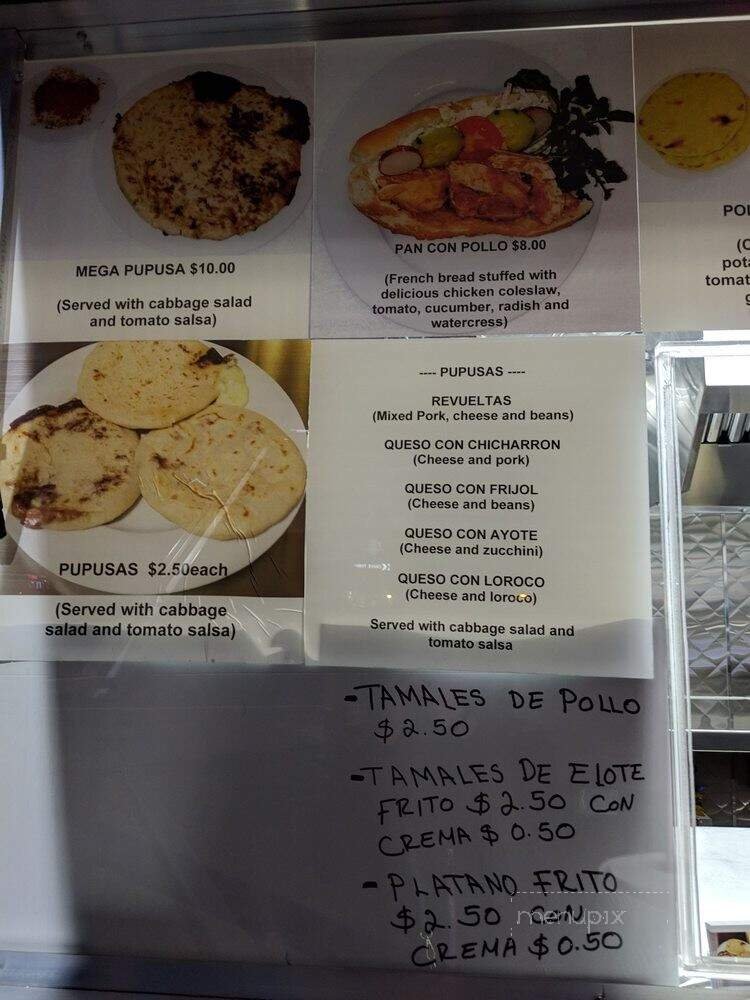 MEGA PUPUSA $10.00
(Served with cabbage salad
and tomato salsa)
PAN CON POLLO $8.00
(French bread stuffed with
delicious chicken coleslaw,
tomato, cucumber, radish and
watercress)
PUPUSAS $2.50each
(Served with cabbage
salad and tomato salsa)
---- PUPUSAS ----
REVUELTAS
(Mixed Pork, cheese and beans)
QUESO CON CHICHARRON
(Cheese and pork)
QUESO CON FRIJOL
(Cheese and beans)
QUESO CON AYOTE
(Cheese and zucchini)
QUESO CON LOROCO
(Cheese and loroco)
Served with cabbage salad and
tomato salsa
-TAMALES DE POLLO
$2.50
-TAMALES DE ELOTE
FRITO $2.50 CON
CREMA $0.50
-PLATANO FRITO
$2.50 CON
CREMA $0.50
menupix